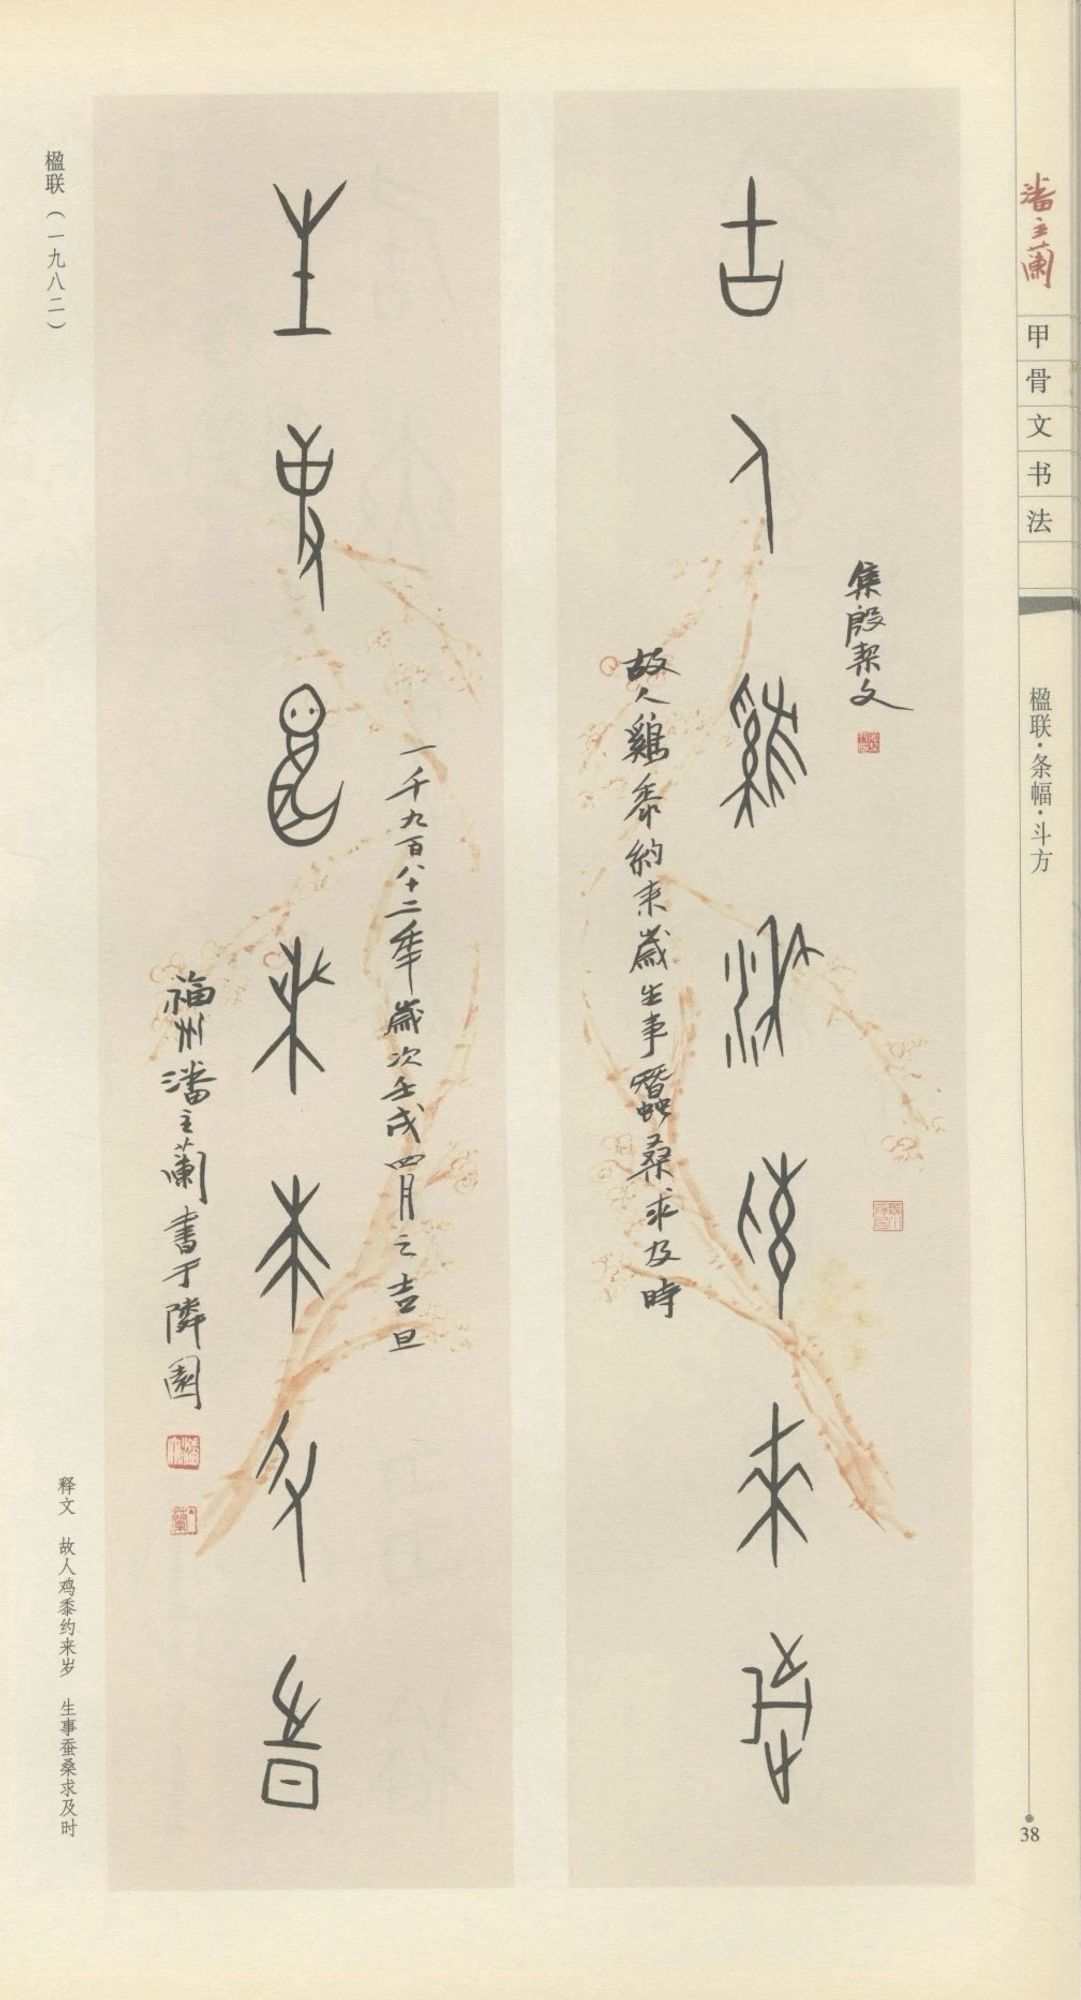 潘主蘭
甲骨文书法
楹联·条幅·斗方
38
集殷契文
古人鷄黍約來歲
故人鷄黍約来歲生事蠶桑求及時
生事蠶桑求及時
一千九百八十二年歲次壬戌四月之吉旦
福州潘主蘭書于隣園
楹联（一九八二）
释文 故人鸡黍约来岁 生事蚕桑求及时